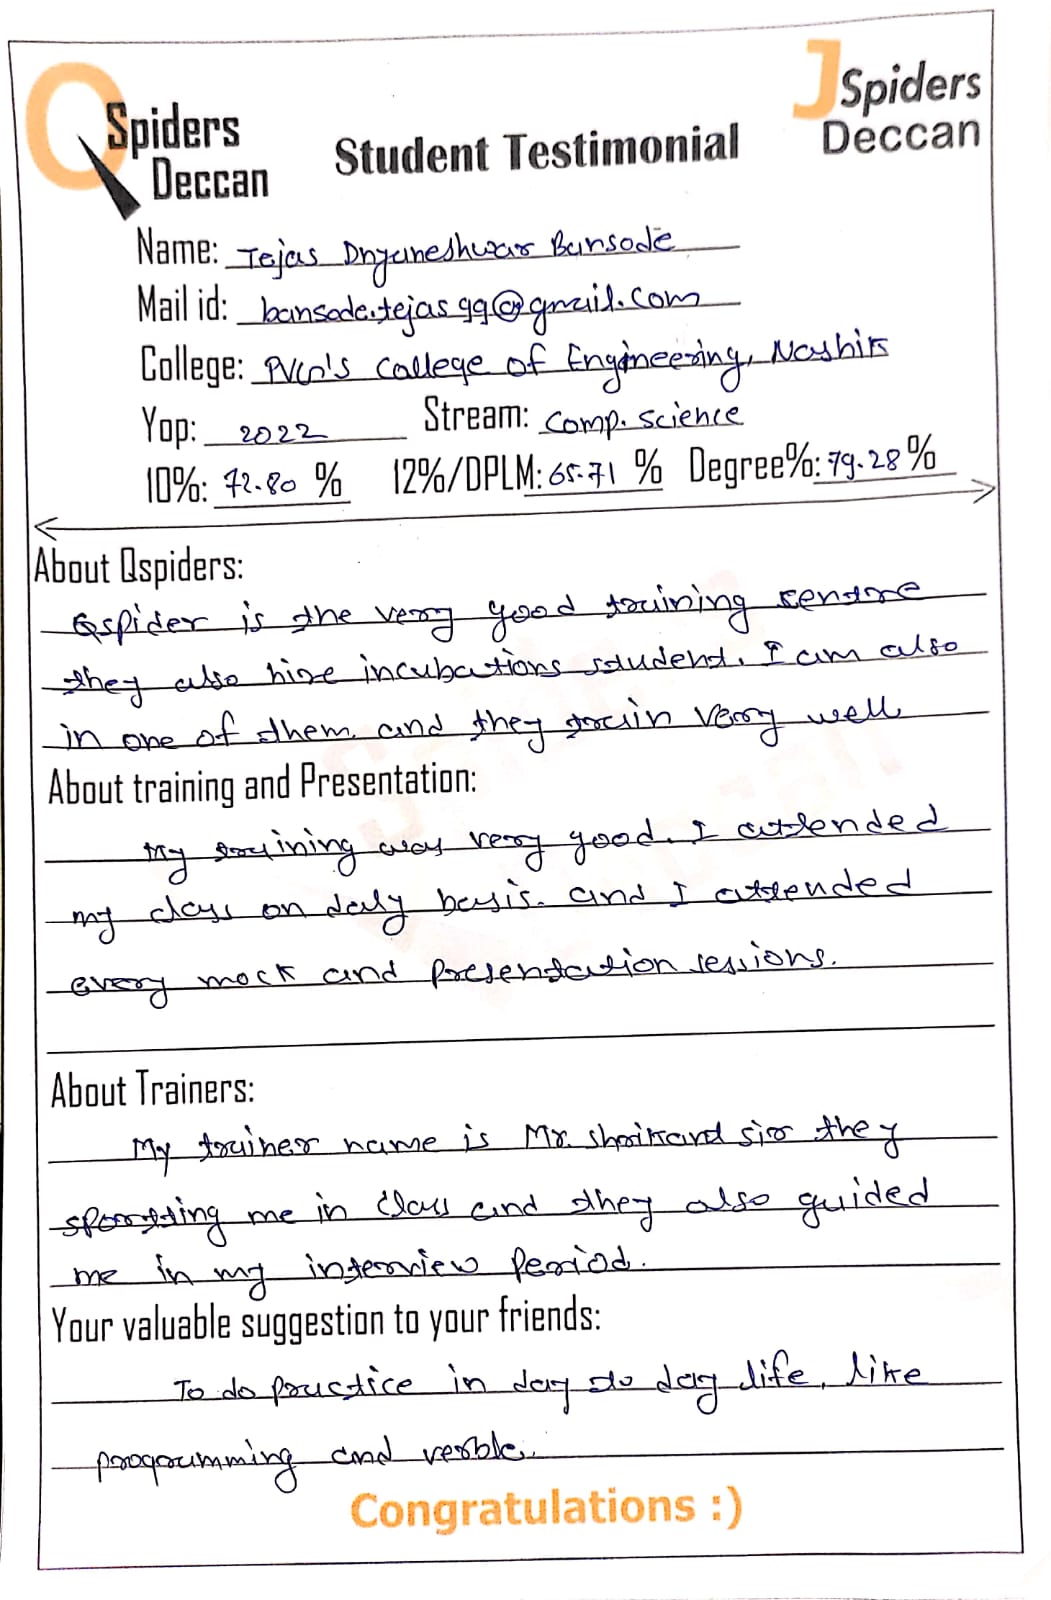 QSpiders
Deccan
JSpiders
Deccan
Student Testimonial
Name: Tejas Dnyaneshwar Bansode
Mail id: bansode.tejas99@gmail.com
College: PVG's College of Engineering, Nashik
Yop: 2022 Stream: Comp. science
10%: 72.80 % 12%/DPLM: 65.71 % Degree%: 79.28%
About Qspiders:
Qspider is the very good training centre
they also hire incubations student. I am also
in one of them. and they train very well
About training and Presentation:
My training was very good. I attended
my class on daly basis. and I attended
every mock and presentation sessions.
About Trainers:
My trainer name is Mr. Shrikant sir they
me in class and they also guided
me in my interview period.
Your valuable suggestion to your friends:
To do practice in day to day life, like
programming and verble.
Congratulations :)